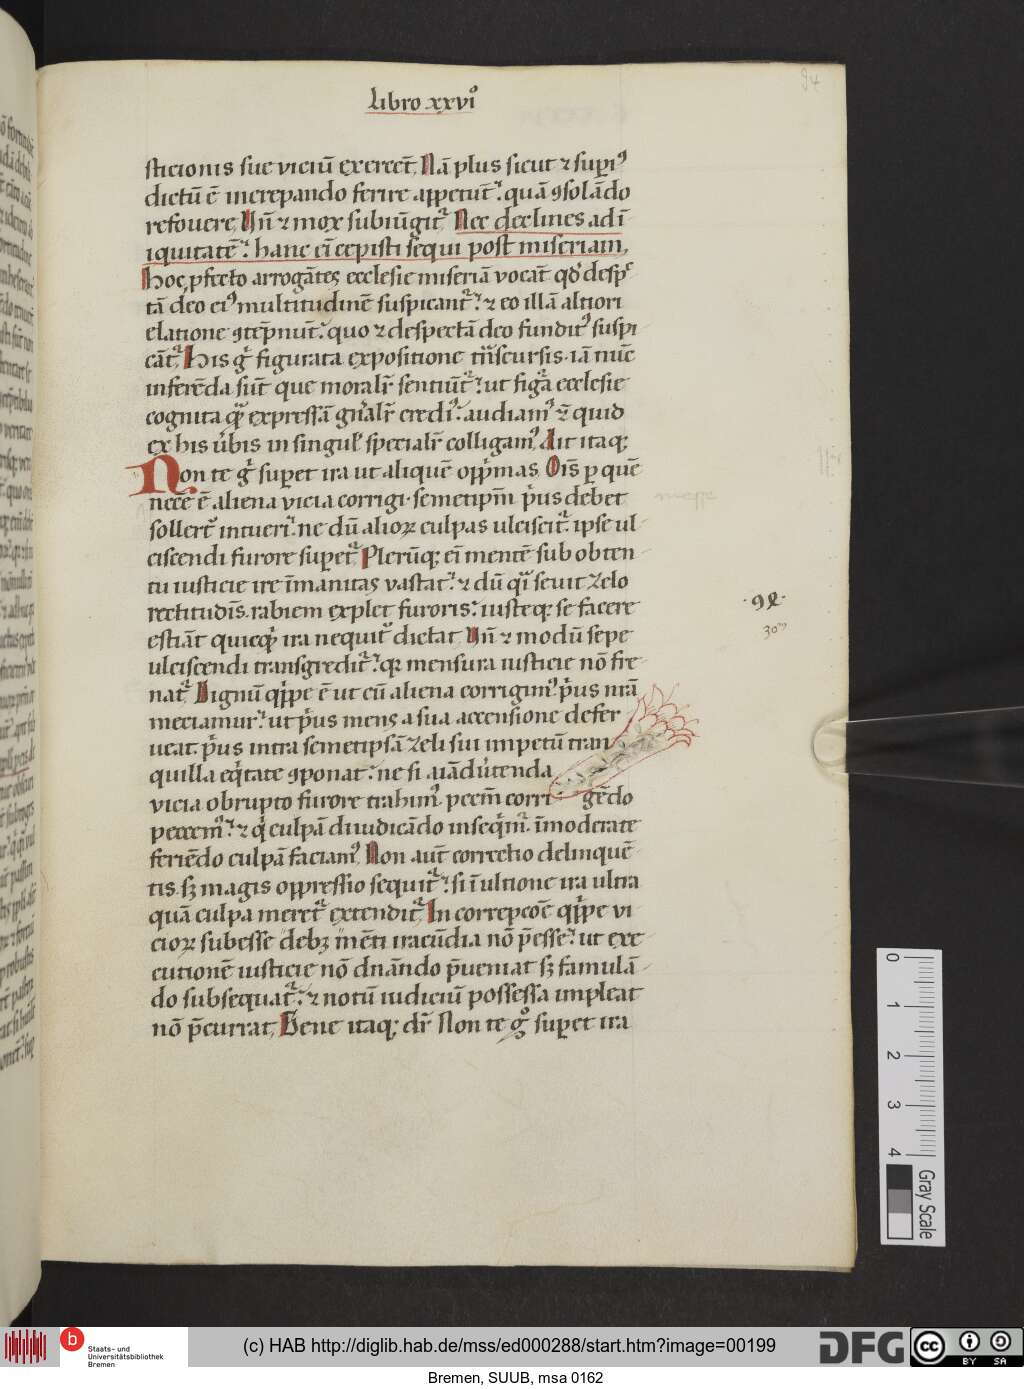 94
Libro xxvi°
sticionis sue viciū exercet̄. Nā plus sicut ⁊ supi᾽
dictū ē increpando ferire appetūt: quā ꝯsolādo
refouere. Un̄ ⁊ mox subiūgit᷑. Nec declines ad ī
iquitatē: hanc ei̅ cepisti sequi post miseriam.
Hoc ꝓfecto arrogātes ecclesie miseriā vocāt qd̕ desp̲c̲
tā deo ei᾽ multitudinē suspicant᷑: ⁊ eo illā altiori
elatione ꝯtēpnūt: quo ⁊ despectā deo fundit᾽ suspi
cāt᷑. His g͛ figurata expositione tn̄scursis. iā nūc
inferēda sūt que moralr̄ sentiūt᷑: ut figᷓa ecclesie
cognita qᷓ exp̲ssā gn̄alr̄ credim᾽: audiam᾽ ⁊̄ quid
ex his ūbis in singul᾽ specialr̄ colligam᾽. Ait itaq;
Non te g͛ supet ira ut aliquē opp̄mas. Oīs ꝑ quē
necē ē aliena vicia corrigi. semetipm̄ p̄us debet
sollert᾽ intueri: ne dū alioꝝ culpas ulciscit᷑. ipse ul
ciscendi furore supet᷑. Plerūq; ei̅ mentē sub obten
tu iusticie ire īmanitas vastat: ⁊ dū qᷓi seuit zelo
rectitudīs. rabiem explet furoris: iusteq; se facere
estiāt quicqᷓ ira nequit᾽ dictat. Un̄ ⁊ modū sepe
ulciscendi transgredit᷑: qꝛ mensura iusticie nō fre
nat᷑. Dignū qᷓppe ē ut cū aliena corrigim᾽. p̄us nr̄a
meciamur: ut p̄us mens a sua accensione defer
ueat. p̄us intra semetipsā zeli sui impetū tran
quilla eq̄tate ꝯponat: ne si aīaduertenda
vicia obrupto furore trahim᾽. pecm̄ corri gēdo
peccem᾽: ⁊ qͥ culpā diiudicādo inseqm̄᷑. īmoderate
feriēdo culpā faciam᾽. Non aut̄ correctio delinquē
tis. sꝫ magis oppressio sequit᷑: si ī ultione ira ultra
quā culpa meret᷑ extendit᷑. In correpcōe qᷓppe vi
cioꝝ subesse debꝫ mēti iracūdia nō p̄esse: ut exe
cutionē iusticie nō dn̄āndo p̄ueniat sꝫ famulā
do subsequat᷑: ⁊ notū iudiciū possessa impleat
nō p̄currat. Bene itaq; dr̄. Non te g° supet ira
·9ꝭ·
30ᵐ
0
1
2
3
4
Gray Scale
b
Staats- und
Universitätsbibliothek
Bremen
(c) HAB http://diglib.hab.de/mss/ed000288/start.htm?image=00199
DFG
cc
BY SA
Bremen, SUUB, msa 0162